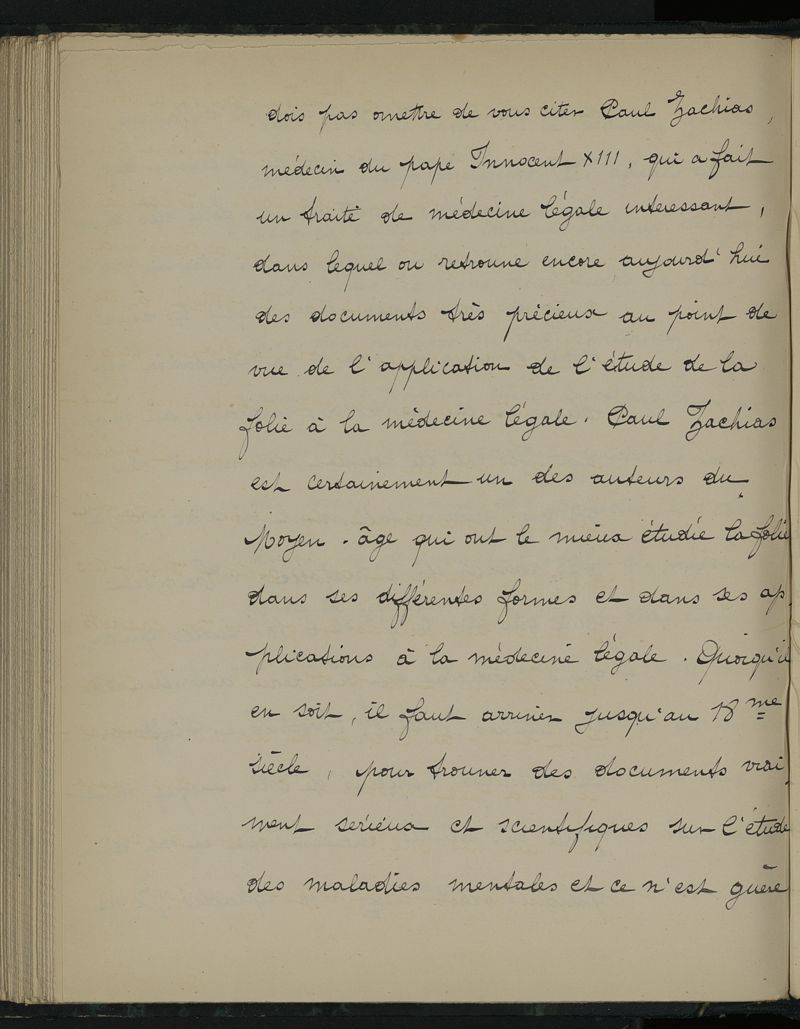 dois pas omettre de vous citer Paul Zachias,
médecin du pape Innocent XIII, qui a fait
un traité de médecine légale intéressant,
dans lequel on retrouve encore aujourd'hui
des documents très précieux au point de
vue de l'application de l'étude de la
folie à la médecine légale. Paul Zachias
est certainement un des auteurs du
Moyen-âge qui ont le mieux étudié la folie
dans ses différentes formes et dans ses ap-
plications à la médecine légale. Quoiqu'il
en soit, il faut arriver jusqu'au 18me
siècle, pour trouver des documents vrai-
ment sérieux et scientifiques sur l'étude
des maladies mentales et ce n'est guère